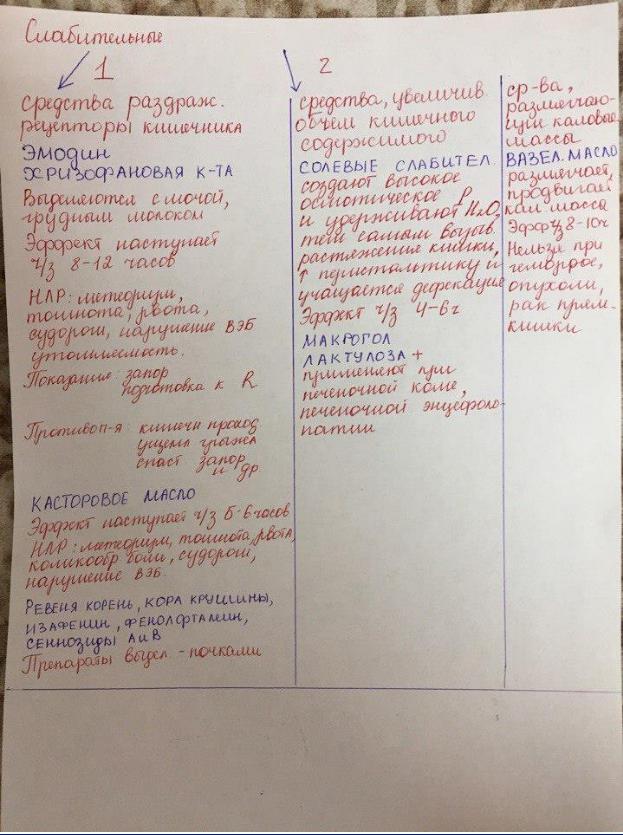 Слабительные
1
средства раздраж.
рецепторы кишечника
ЭМОДИН
ХРИЗОФАНОВАЯ К-ТА
Выделяются с мочой,
грудным молоком
Эффект наступает
ч/з 8-12 часов
НЛР: метеоризм,
тошнота, рвота,
судороги, нарушение ВЭБ
утомляемость.
Показание: запор
подготовка к R
Противоп-я: кишечн проход
ущемл грыжа
спаст запор
и др
КАСТОРОВОЕ МАСЛО
Эффект наступает ч/з 5-6 часов
НЛР: метеоризм, тошнота, рвота,
коликообр боли, судороги,
нарушение ВЭБ.
РЕВЕНЯ КОРЕНЬ, КОРА КРУШИНЫ,
ИЗАФЕНИН, ФЕНОЛФТАЛИН,
СЕННОЗИДЫ А и В
Препараты выдел - почками
2
средства, увеличив
объём кишечного
содержимого
СОЛЕВЫЕ СЛАБИТЕЛ.
создают высокое
осмотическое Р
и удерживают H2O,
тем самым вызыв.
растяжения кишки,
↑ перистальтику и
учащается дефекация
Эффект ч/з 4-6 ч
МАКРОГОЛ
ЛАКТУЛОЗА +
применяют при
печеночной коме,
печеночной энцефоло-
патии
ср-ва,
размягчаю-
щие каловые
массы
ВАЗЕЛ. МАСЛО
размягчает,
продвигая
кал масса
Эфф ч/з 8-10ч
Нельзя при
геморрое,
опухоли,
рак прям.
кишки